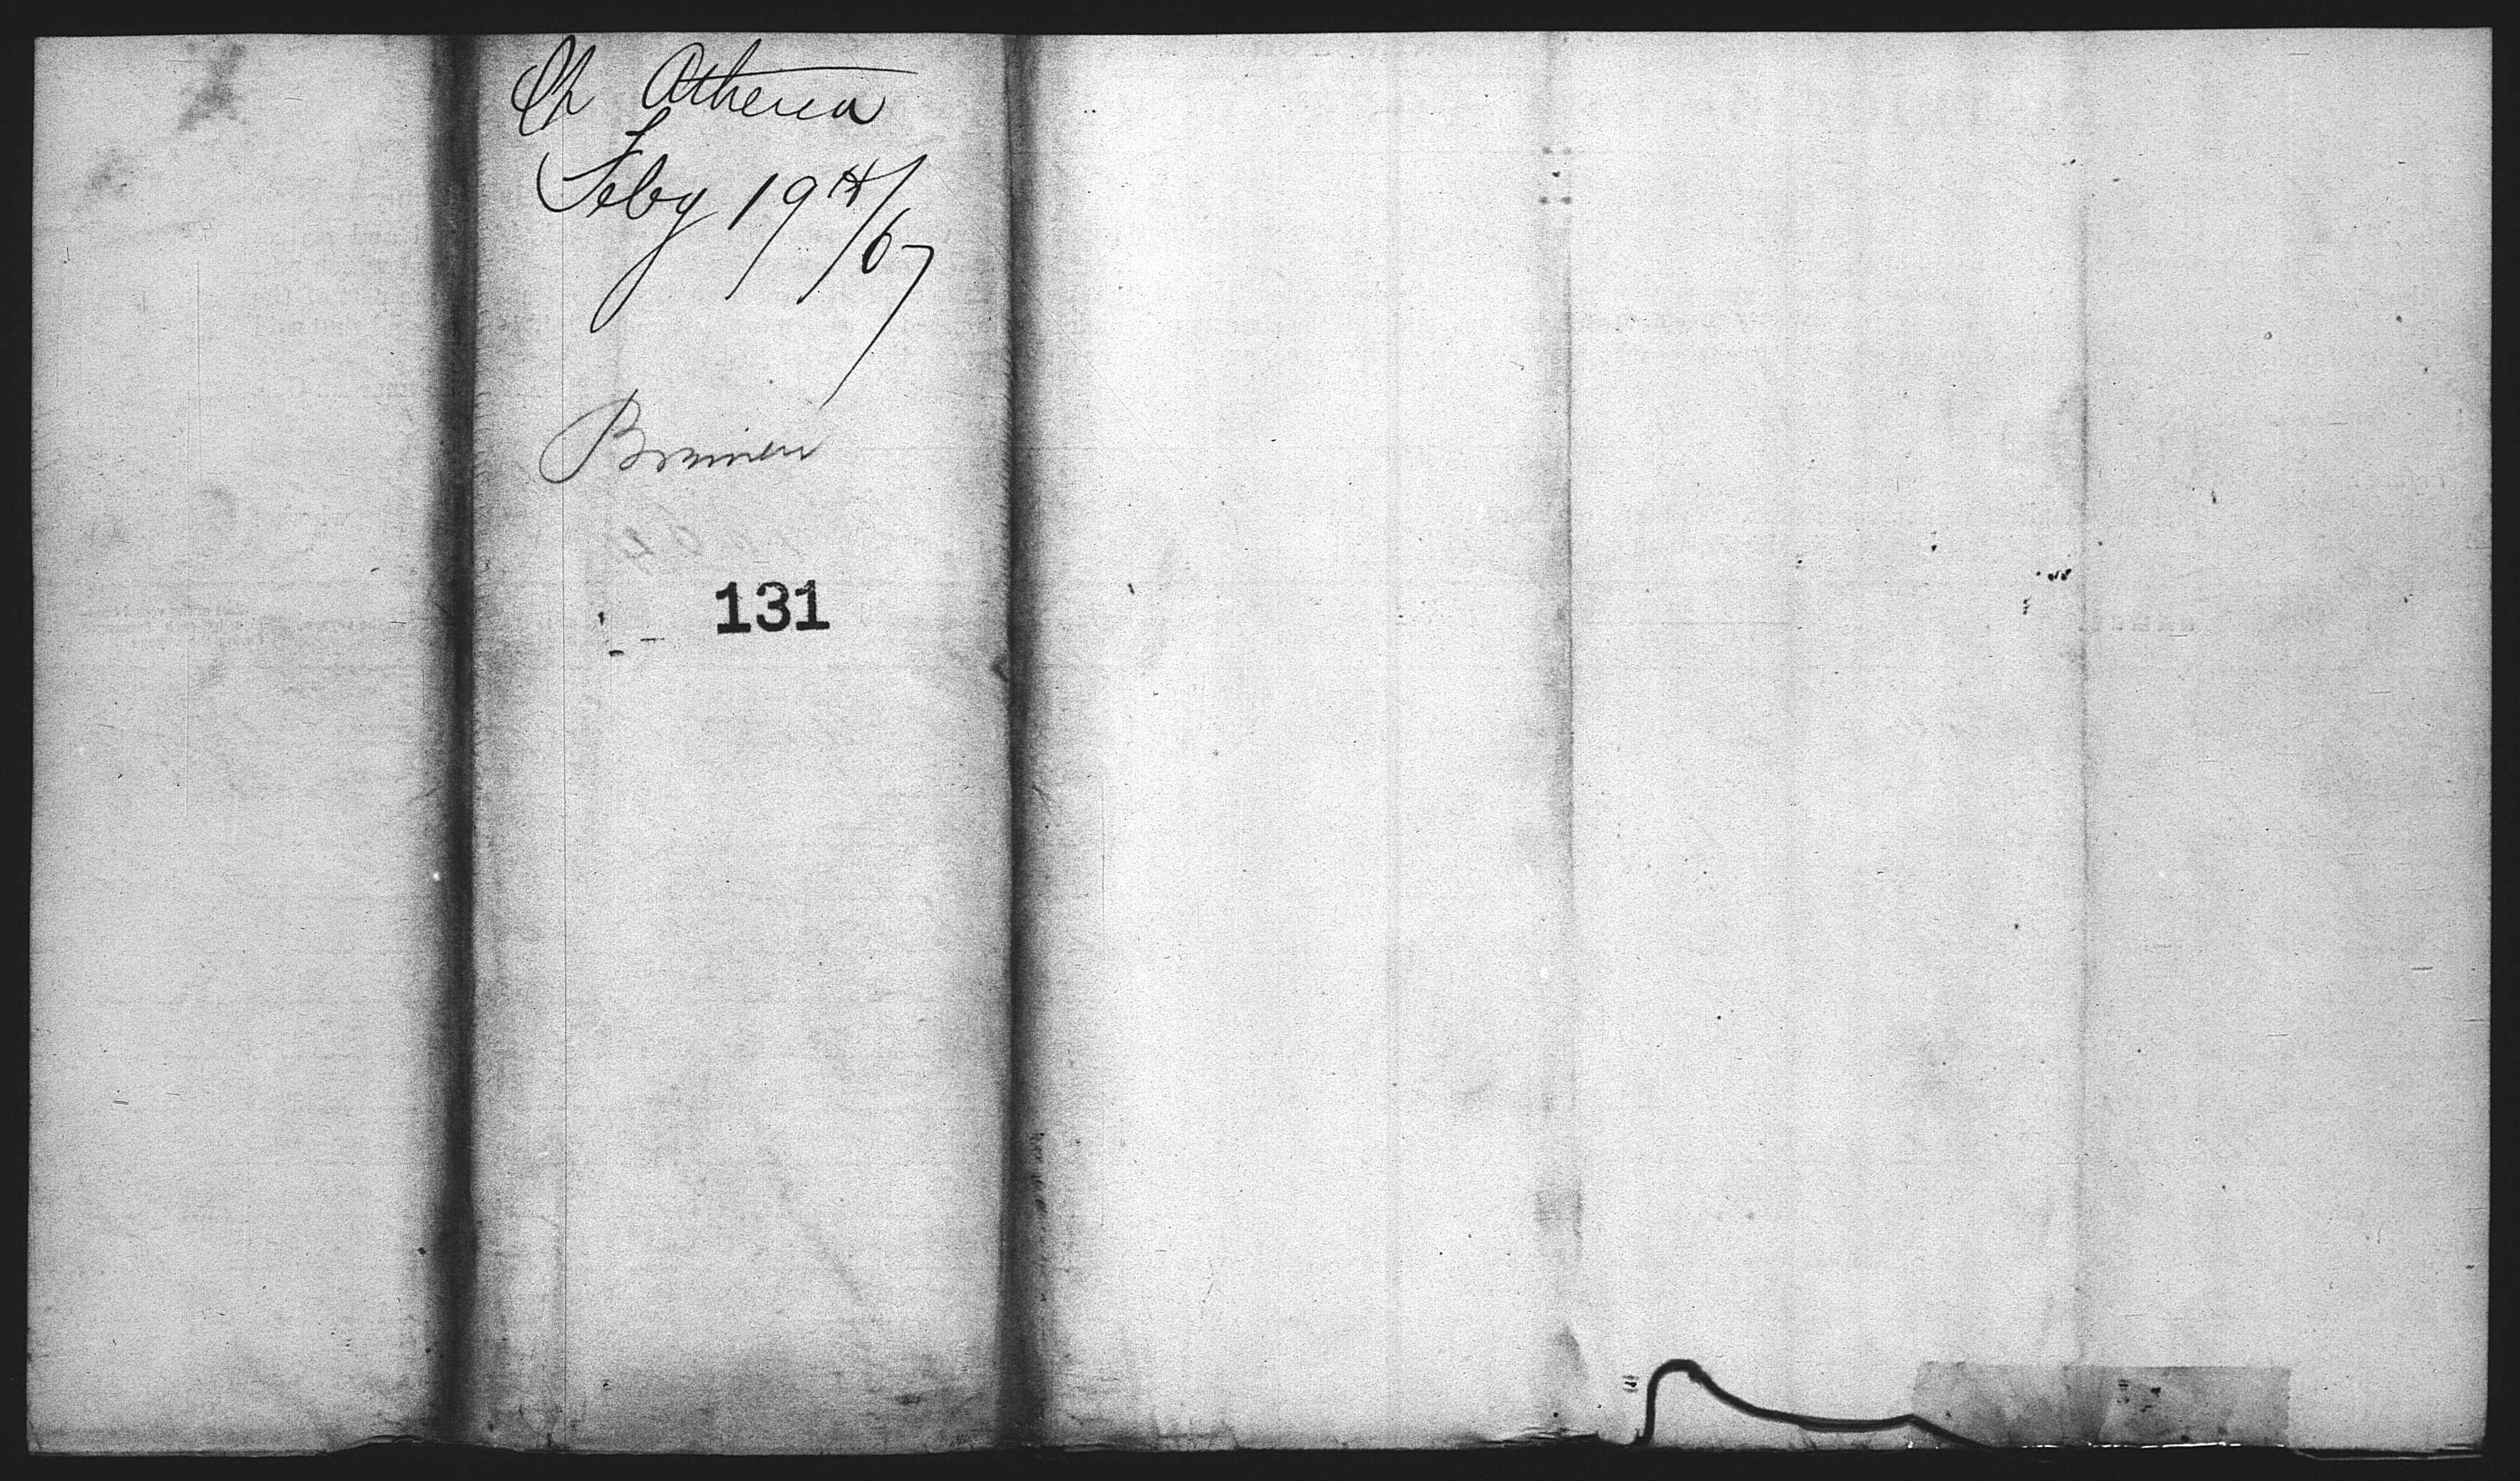 Sh Athena
Feby 19th/67
Bremen
131